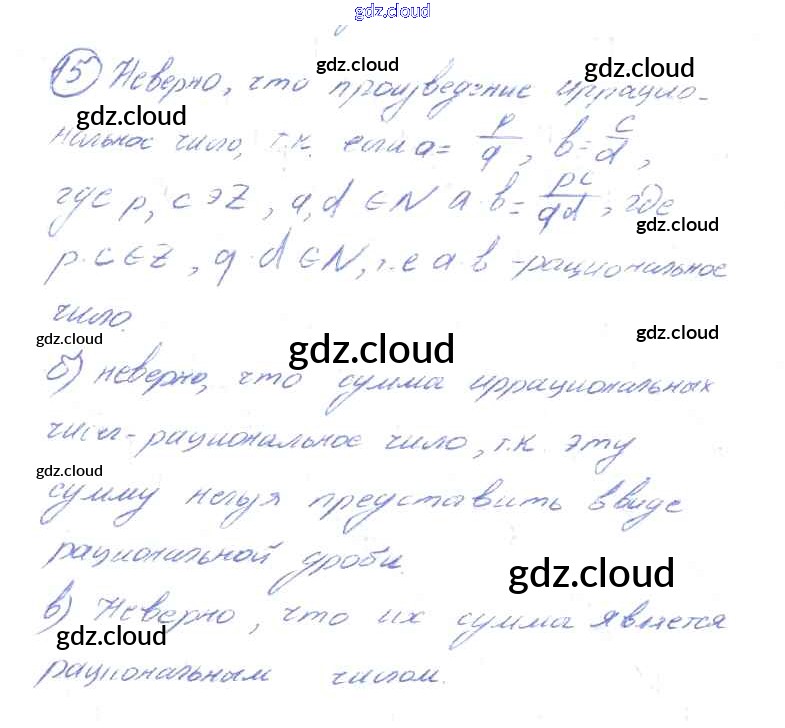 gdz.cloud
gdz.cloud
gdz.cloud
15) Неверно, что произведение иррацио-
gdz.cloud
нальное число, т.к. если a = p/q, b = c/d,
где p, c ∋ Z, q, d ∈ N a·b = pc/qd, где
gdz.cloud
p·c ∈ Z, q·d ∈ N, т.е a·b - рациональное
число.
gdz.cloud
gdz.cloud
gdz.cloud
б) неверно, что сумма иррациональных
чисел - рациональное число, т.к. эту
gdz.cloud
сумму нельзя представить в виде
рациональной дроби.
gdz.cloud
в) Неверно, что их сумма является
gdz.cloud
рациональным числом.